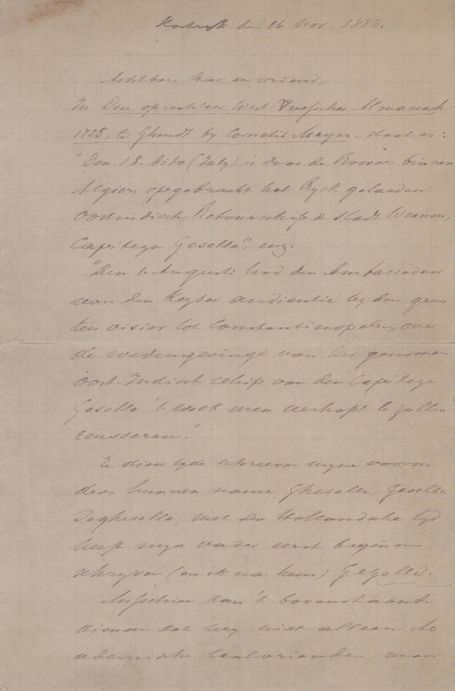 Kortrijk den 16 Nov. 1886.
Achtbare heer en vriend,
In Den oprechten West Vriesschen Almanach
1725, te Ghendt by Cornelis Meyer. staat er:
"Den 18. dito (July) is door de Roovers binnen
Algiers opgebracht het Ryck gelaeden
Oostindisch Retourschip, de stadt Weenen,
Capiteyn Geselle", enz.
"Den 1. Augusti had den Ambassadeur
van den Keyser audientie by den groo
ten visier tot Constantinopelen, over
de wedergevinge van het genomen
oost-Indisch schip van den Capiteyn
Geselle, 't welk men verhopt te zullen
reusseren."
Te dien tyde schreven myne vooroud
ders hunnen name Gheselle, Geselle
Degheselle; met den Hollandschen tyd
heeft myn vader eerst begonnen
schryven (en ik na hem) Gezelle.
Misschien kan 't bovenstaande
dienen tot nog niet alleen Ac
ademische taalvrienden, maar